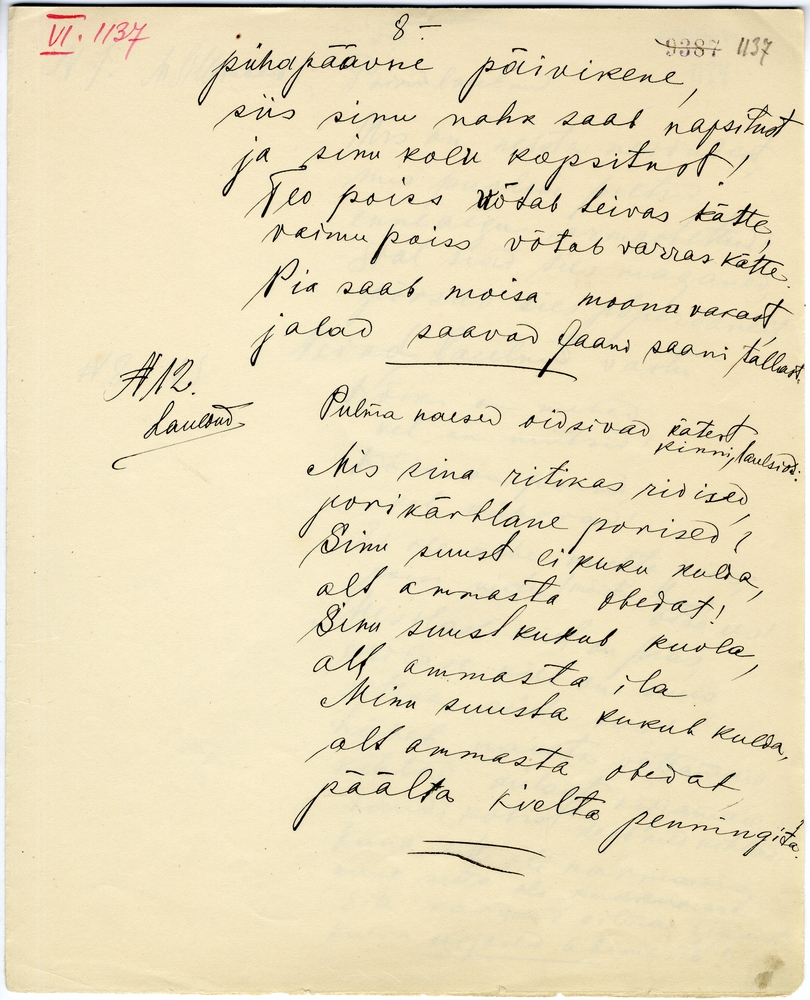 VI. 1137
8 –
9387 1137
pühapäävne päivikene,
siis sinu nahk saab napsitust
ja sinu kolu kopsitust!
Teo poiss võtab teivas kätte,
vaimu poiss võtab varras kätte.
Pia saab moisa moona vakast
jalad saavad Jaani saani tallast.
№ 12.
Laulavad.
Pulma naesed oidsivad kätest
kinni, laulsivad:
Mis sina ritikas ridised,
porikärblane porised?
Sinu suust ei kuku kulda,
alt ammasta obedat!
Sinu suust kukub kuola,
alt ammasta ila
Minu suusta kukub kulda,
alt ammasta obedat,
päälta kielta penningita!